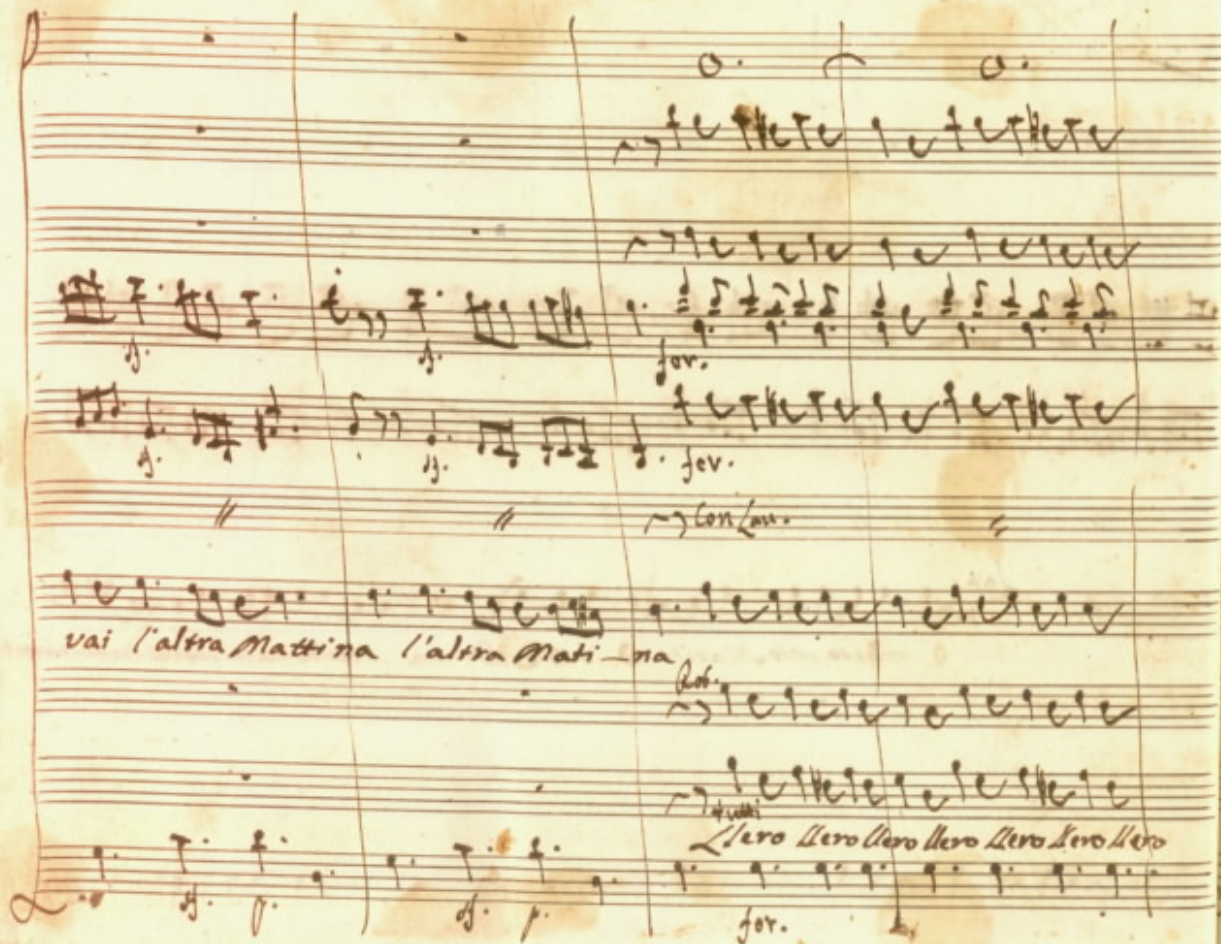 sf. sf. for.
sf. sf. for.
Con
vai l'altra Mattina l'altra Mati-na
Rob.
tutti
Llero llero llero llero llero llero llero
sf. p. sf. p. for.